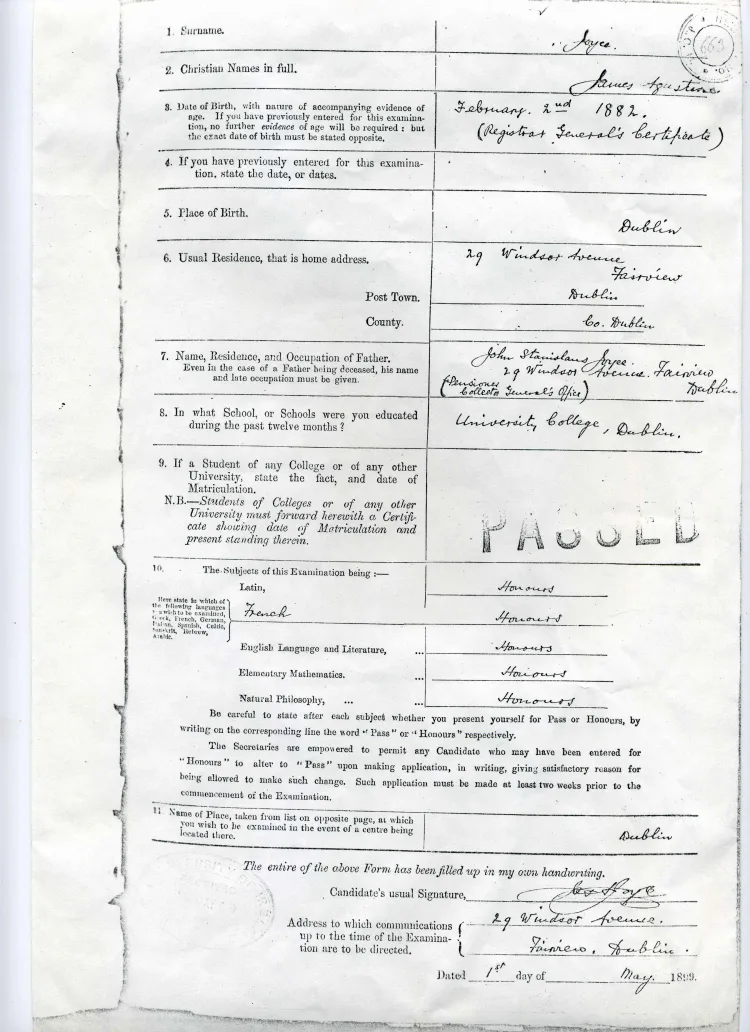 1. Surname.
Joyce.
663
2. Christian Names in full.
James Agustine
3. Date of Birth, with nature of accompanying evidence of
age. If you have previously entered for this examina-
tion, no further evidence of age will be required: but
the exact date of birth must be stated opposite.
February. 2nd 1882.
(Registrar General's Certificate)
4. If you have previously entered for this examina-
tion, state the date, or dates.
5. Place of Birth.
Dublin
6. Usual Residence, that is home address.
29 Windsor Avenue
Fairview
Post Town.
Dublin
County.
Co. Dublin
7. Name, Residence, and Occupation of Father.
Even in the case of a Father being deceased, his name
and late occupation must be given.
John Stanislaus Joyce.
29 Windsor Avenue. Fairview
Dublin
(Pensioner
Collector General's Office)
8. In what School, or Schools were you educated
during the past twelve months?
University College, Dublin.
9. If a Student of any College or of any other
University, state the fact, and date of
Matriculation.
N.B.—Students of Colleges or of any other
University must forward herewith a Certifi-
cate showing date of Matriculation and
present standing therein.
PASSED
10. The Subjects of this Examination being :—
Latin, Honours
Here state in which of
the following languages
wish to be examined,
Greek, French, German,
Italian, Spanish, Celtic,
Sanskrit, Hebrew,
Arabic.
French Honours
English Language and Literature, ... Honours
Elementary Mathematics. ... Honours
Natural Philosophy, ... ... Honours
Be careful to state after each subject whether you present yourself for Pass or Honours, by
writing on the corresponding line the word "Pass" or "Honours" respectively.
The Secretaries are empowered to permit any Candidate who may have been entered for
"Honours" to alter to "Pass" upon making application, in writing, giving satisfactory reason for
being allowed to make such change. Such application must be made at least two weeks prior to the
commencement of the Examination.
11. Name of Place, taken from list on opposite page, at which
you wish to be examined in the event of a centre being
located there.
Dublin
The entire of the above Form has been filled up in my own handwriting.
Candidate's usual Signature, Jas A Joyce
Address to which communications
up to the time of the Examina-
tion are to be directed.
29 Windsor Avenue.
Fairview. Dublin.
Dated 1st day of May. 1899.